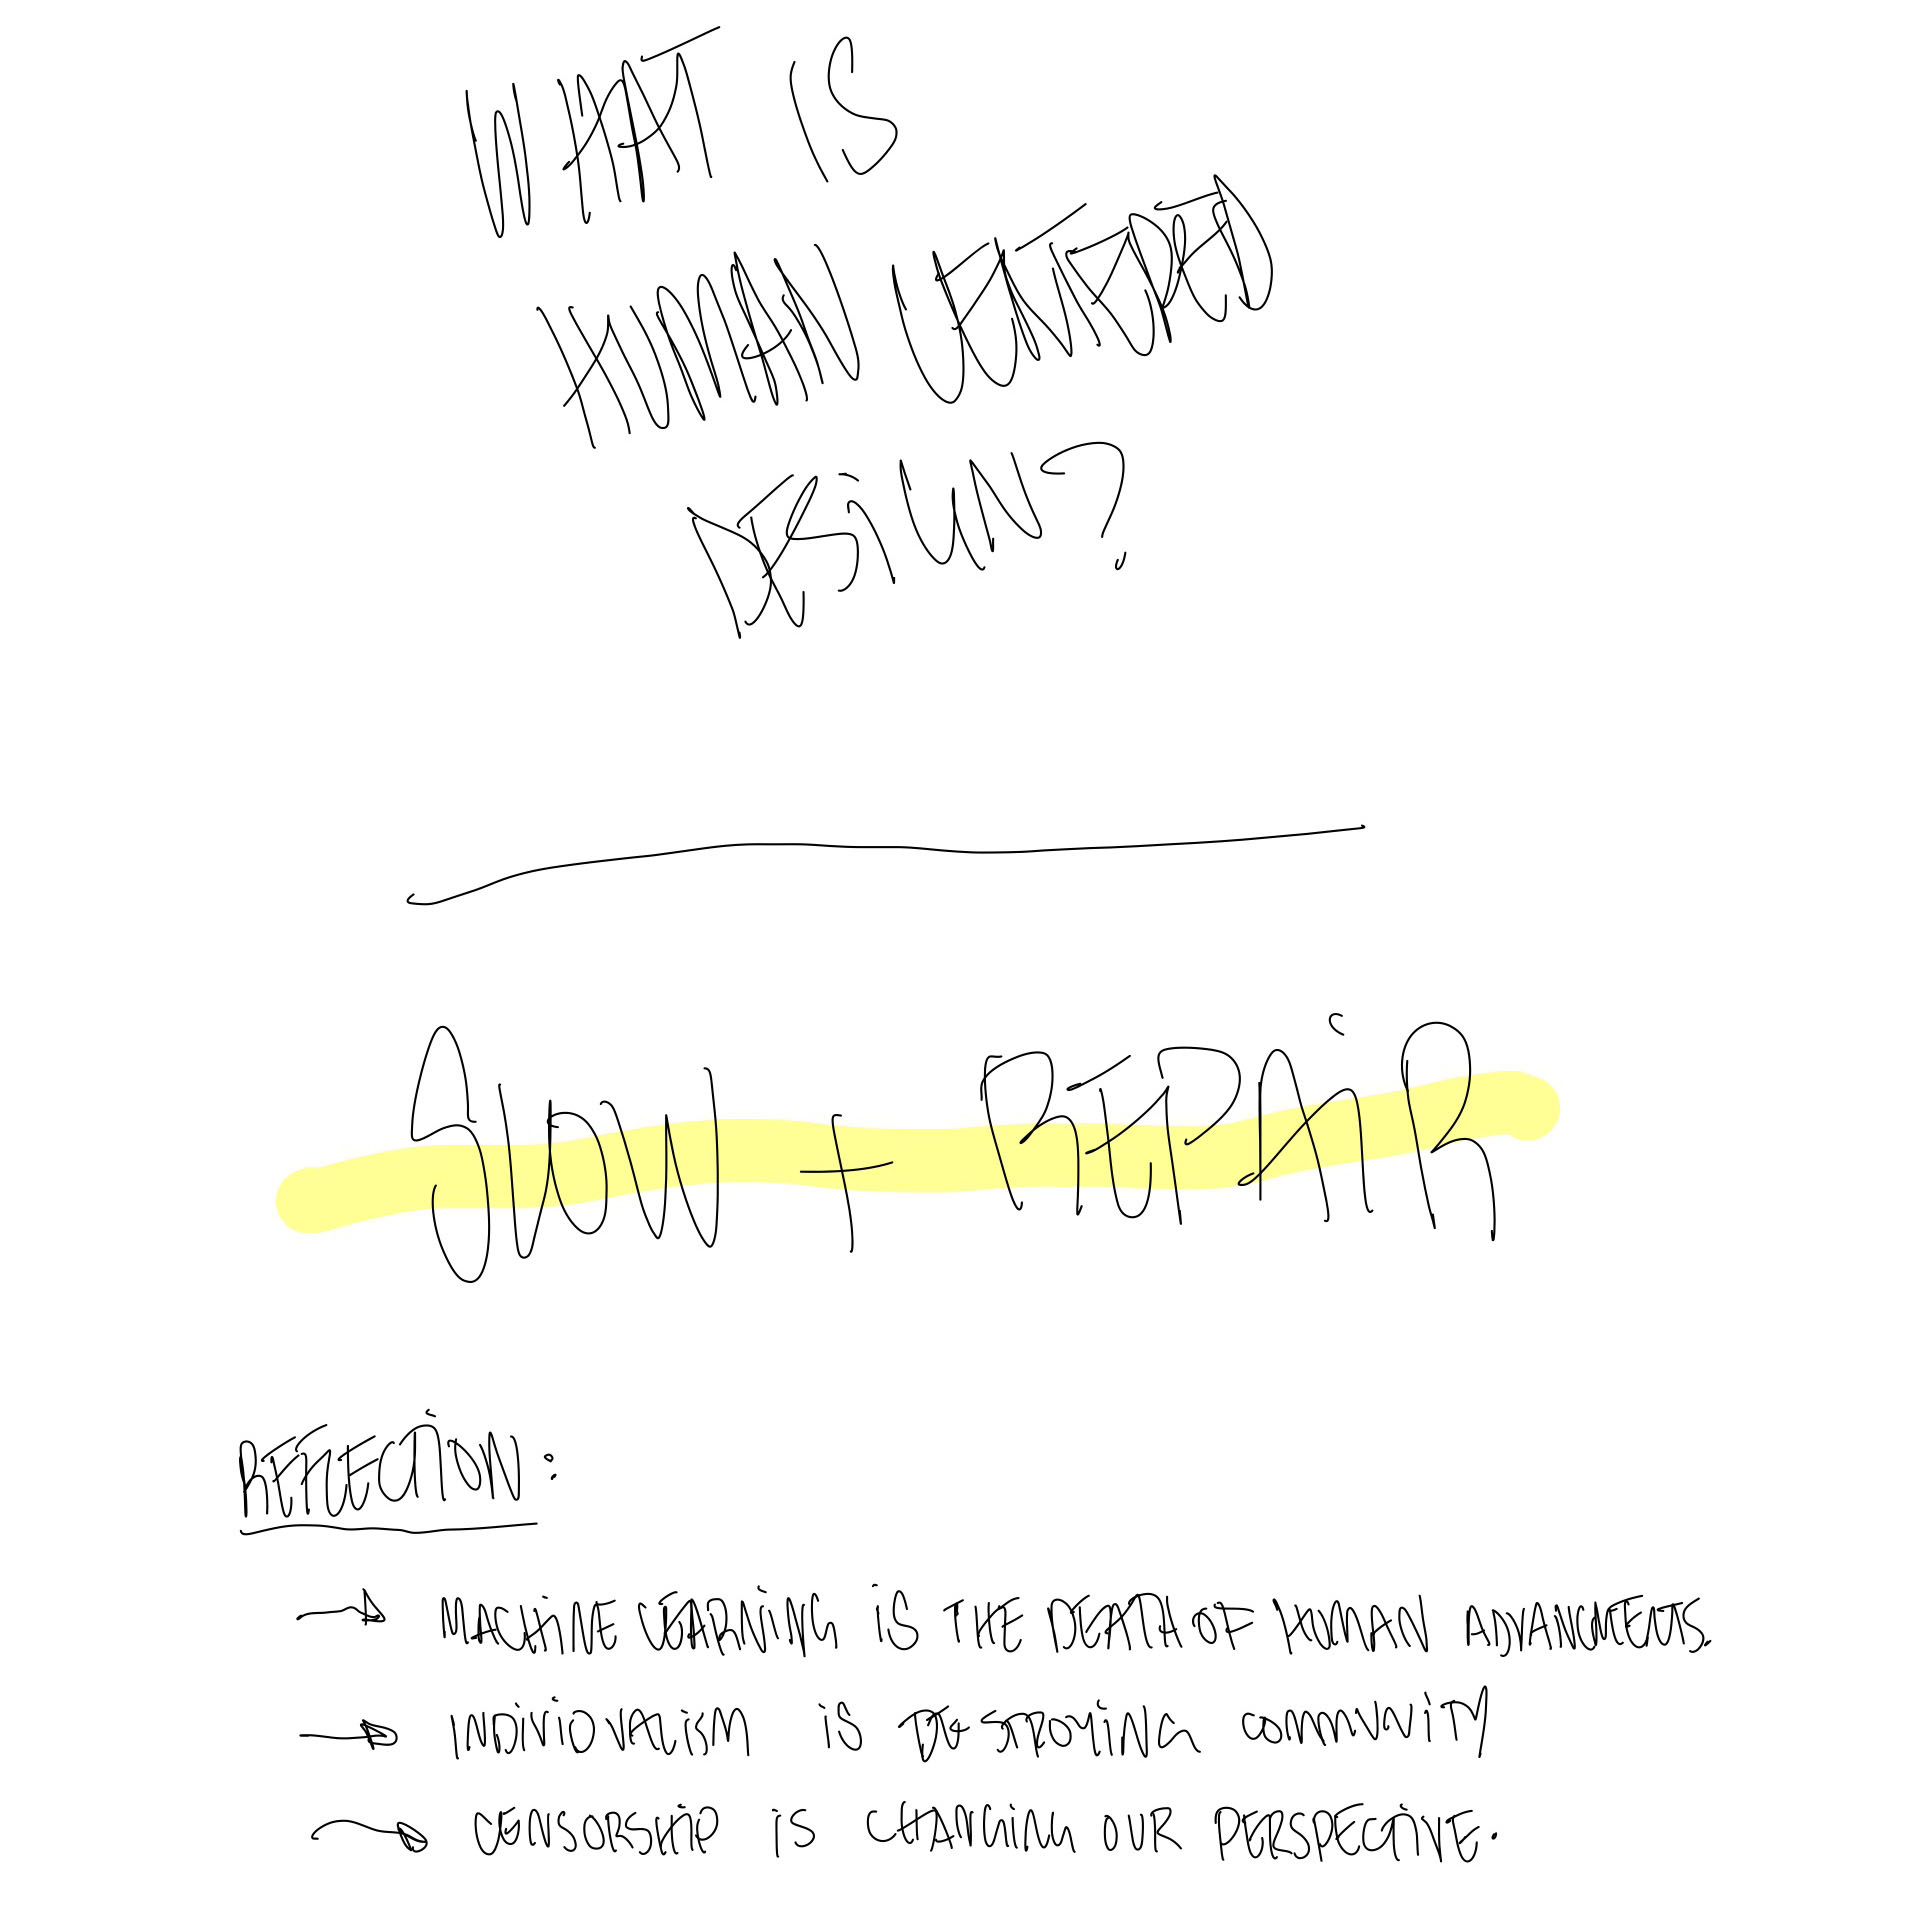 WHAT IS
HUMAN CENTERED
DESIGN?
SLOW + REPAIR
REFLECTION:
→ MACHINE LEARNING IS THE DEATH OF HUMAN ADVANCEMENTS.
→ INDIVIDUALISM IS DESTROYING COMMUNITY
→ CENSORSHIP IS CHANGING OUR PERSPECTIVE.